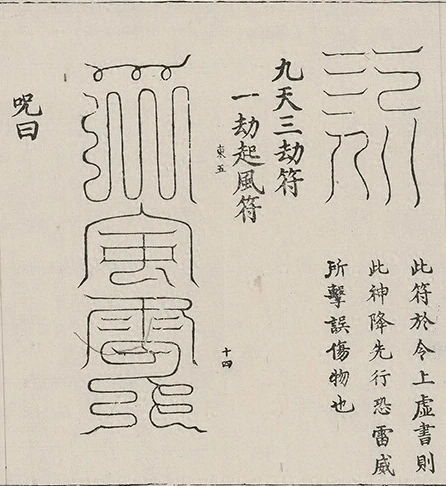 此符於令上虛書則
此神降先行恐雷威
所擊誤傷物也
九天三劫符
一劫起風符
東五
十四
呪曰